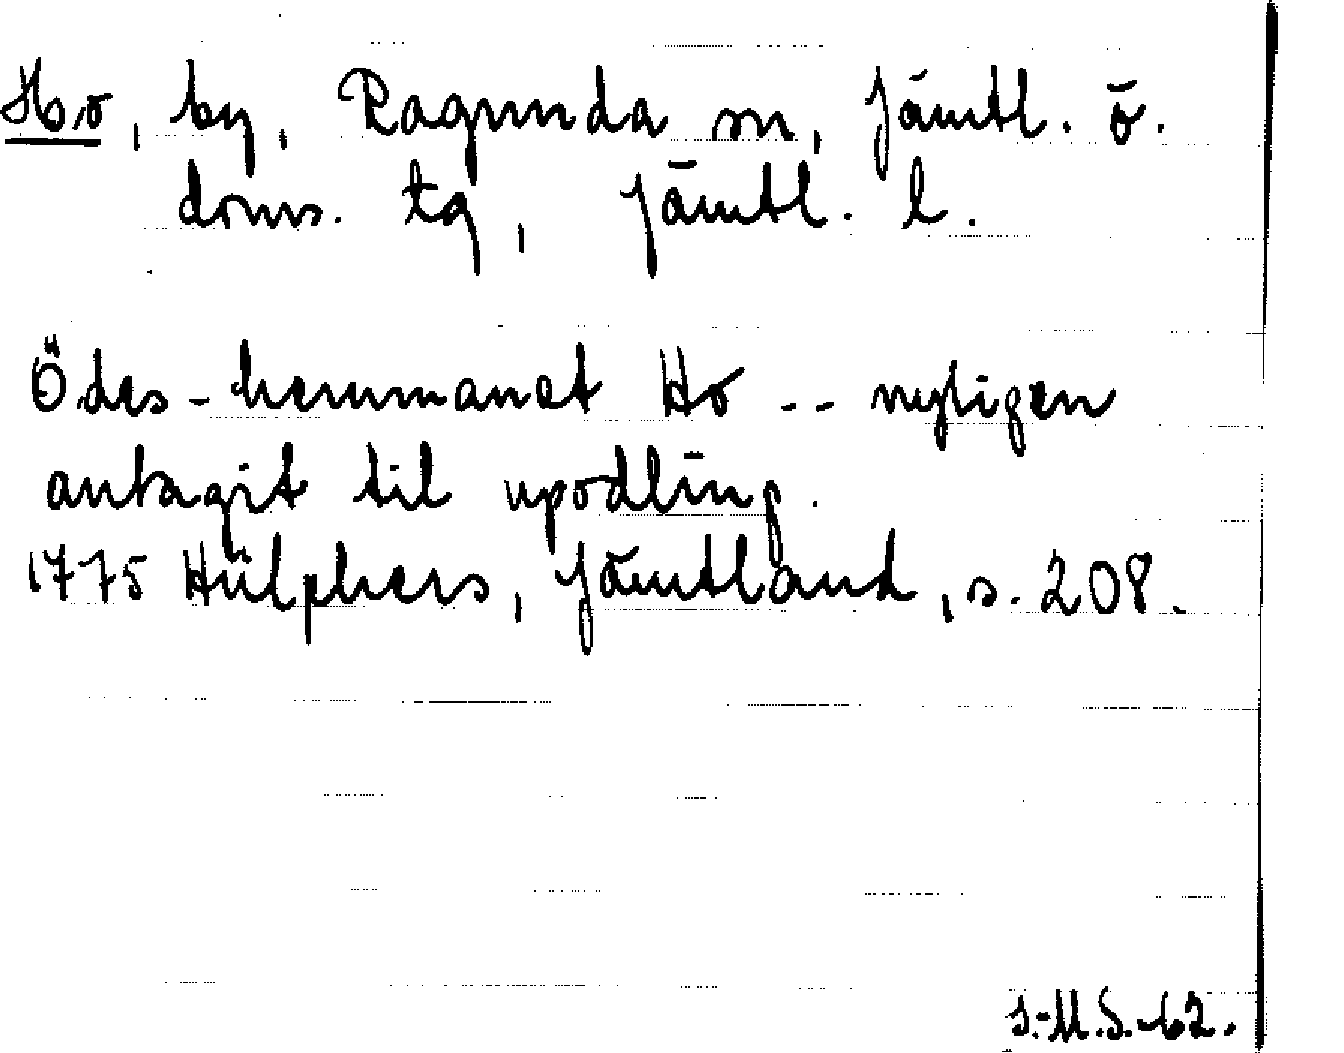 Ho, by, Ragunda sn, Jämtl. ö.
doms. tg, Jämtl. l.
Ödes-hemmanet Ho -- nyligen
antagit til upodling.
1775 Hülphers, Jämtland, s. 208.
I.-M.S.-62.